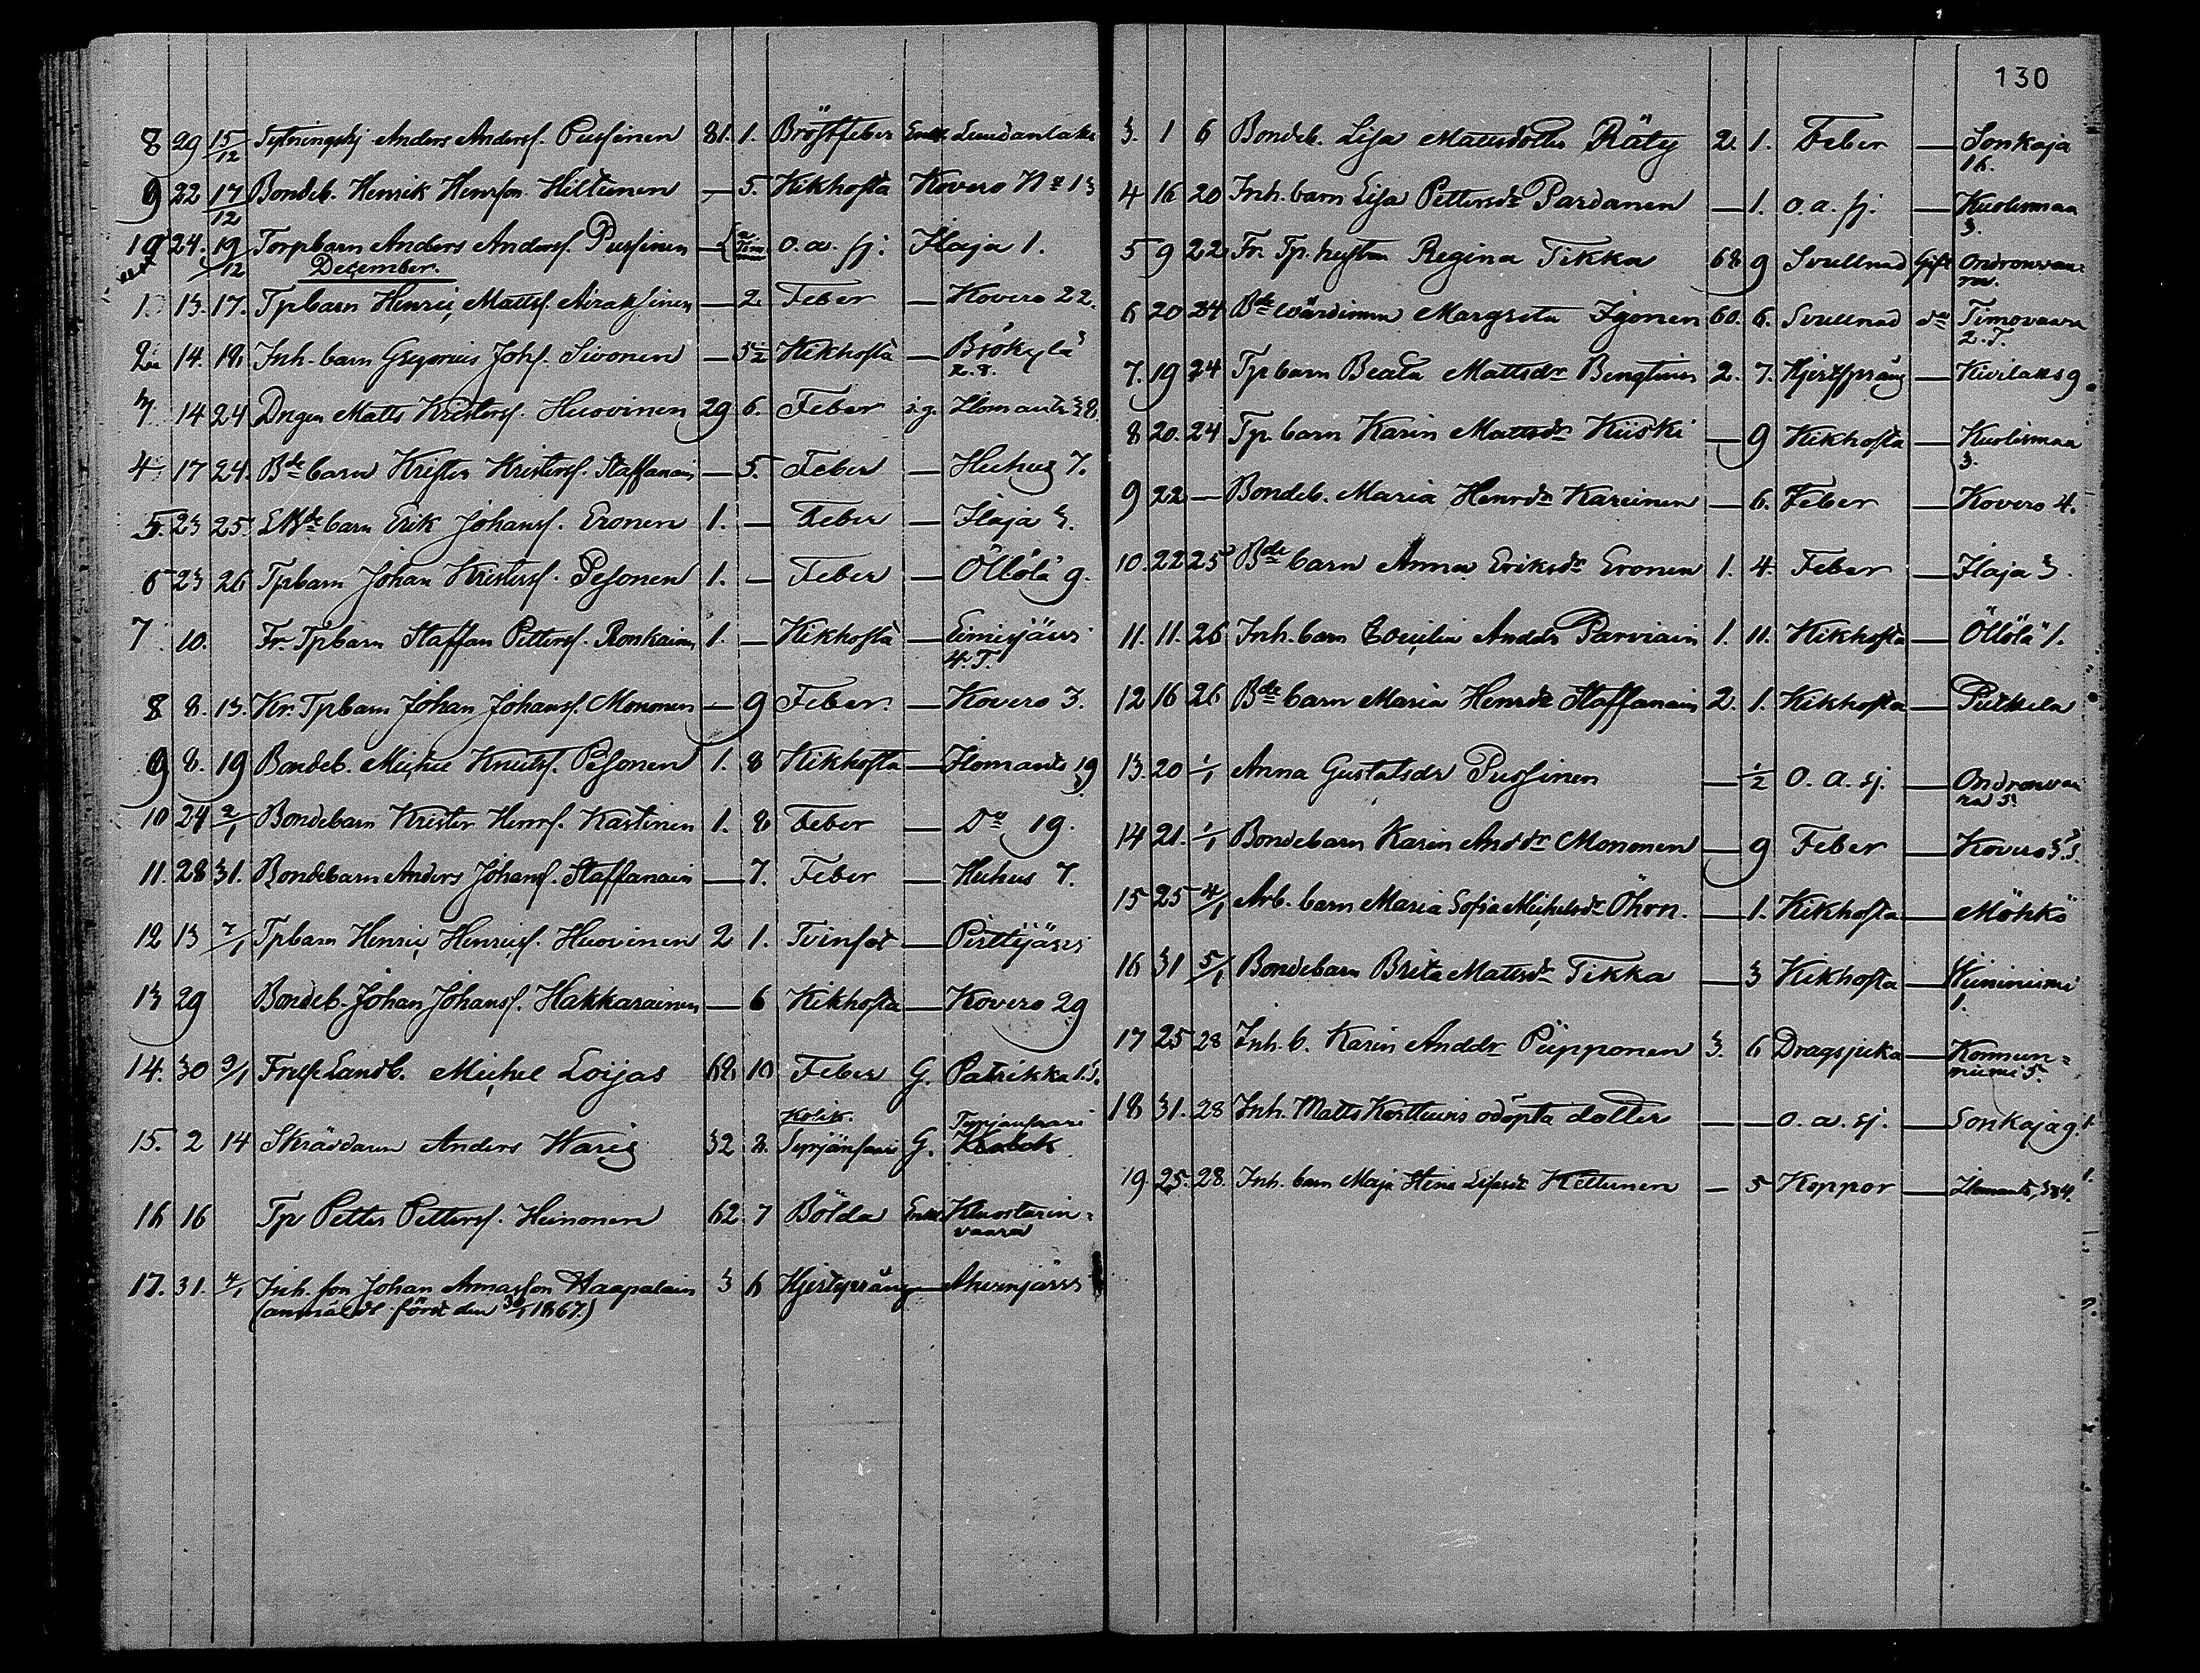 130
8 29 15/12 Sytningshj Anders Andersf. Pussinen 81. 1. Bröstfeber Enkl.
9 22 17/12 Bondeb. Henrik Henrsson Hiltunen — 5. Kikhosta Kovero No 13
10 24. 19/12 Torpbarn Anders Andersf. Pussinen — o. a. sj. Ilaja 1.
December.
1. 13. 17. Tpbarn Henric Mattsf. Airaksinen — 2. Feber — Kovero 22.
2. 14. 18. Inh. barn Gregorius Johsf. Sivonen — 5½ Kikhosta — Brökylä
2. 8.
3. 14 24 Drgen Matts Kristersf. Huovinen 29 6. Feber i.g. Ilomants 38.
4. 17 24. Bde barn Krister Kristersf. Staffanain — 5. Feber — Huhus 7.
5. 23 25. barn Erik Johansf. Eronen 1. — Feber — Ilaja 3.
6 23 26 Tpbarn Johan Kristersf. Pesonen 1. — Feber — Öllölä 9.
7. 10. Fr. Tpbarn Staffan Pettersf. Ronkainen 1. — Kikhosta — Eimisjärvi
4. T.
8 8. 13. Kr. Tpbarn Johan Johansf. Mononen — 9 Feber — Kovero 3.
9 8. 19 Bondeb. Michel Knutsf. Pesonen 1. 8 Kikhosta — Ilomants 19
10 24 2/1 Bondebarn Krister Henrsf. Kastinen 1. 8 Feber — Do 19.
11. 28 31. Bondebarn Anders Johansf. Staffanain — 7. Feber — Huhus 7.
12 13 7/1 Tpbarn Henric Henricsf. Huovinen 2 1. Tvinsot — Pirttijärvi
13 29 Bondeb. Johan Johansf. Hakkarainen — 6 Kikhosta — Kovero 29
14. 30 9/1 Landb. Michel Loijas 68. 10 Feber G. Patrikka 1. S.
Kolik.
15. 2 14 Skräddaren Anders Waris 32 2. G.
16 16 Tp Petter Pettersf. Heinonen 62. 7 Bölda Enkl. Kluostarin-
vaara
17. 31. 4/1 Inh. son Johan Haapalain 3 6 Hjertspräng —
(anmäldt först den 30/1 1867.)
3. 1 6 Bondeb. Lisa Mattsdotter Räty 2. 1. Feber — Sonkaja
16.
4 16 20 Inh. barn Lisa Pettersdr Pardanen — 1. o. a. sj. — Kuolismaa
3.
5 9 22 Fr. Tp. hustru Regina Tikka 68 9 Svullnad Gift Ondronvaa-
ra.
6 20 24 Bde värdinna Margreta Igonen 60. 6. Svullnad do Timovaara
2. T.
7. 19 24 Tp barn Beata Mattsdr Bengtinen 2. 7. Hjertspräng — Kivilaks 9.
8 20. 24 Tp. barn Karin Mattsdr Kiiski — 9 Kikhosta — Kuolismaa
3.
9 22 — Bondeb. Maria Henrdr Kareinen — 6. Feber — Kovero 4.
10. 22 25 Bde barn Anna Eriksdr Eronen 1. 4. Feber — Ilaja 3.
11. 11. 26 Inh. barn Cecilia Anddr Parviain 1. 11. Kikhosta — Öllölä 1.
12 16 26 Bde barn Maria Henrdr Staffanain 2. 1. Kikhosta — Putkela
13. 20 1/1 Anna Gustafsdr Pussinen — ½ o. a. sj. — Ondronvaa
ra 5.
14 21. 1/1 Bondebarn Karin Anddr Mononen — 9 Feber — Kovero 3.
15 25 4/1 Arb. barn Maria Sofia Michelsdr Öhrn. — 1. Kikhosta — Möhkö
16 31 5/1 Bondebarn Brita Mattsdr Tikka — 3 Kikhosta — Wiininiemi
1.
17 25 28 Inh. b. Karin Anddr Piipponen 3. 6 Dragsjuka — Konnun-
niemi 5.
18 31. 28 Inh. Matts Korttunis odöpta dotter — — o. a. sj. — Sonkaja 9.
19. 25. 28. Inh. barn Maja Stina Kettunen — 5 Koppor — Ilomants, 34.